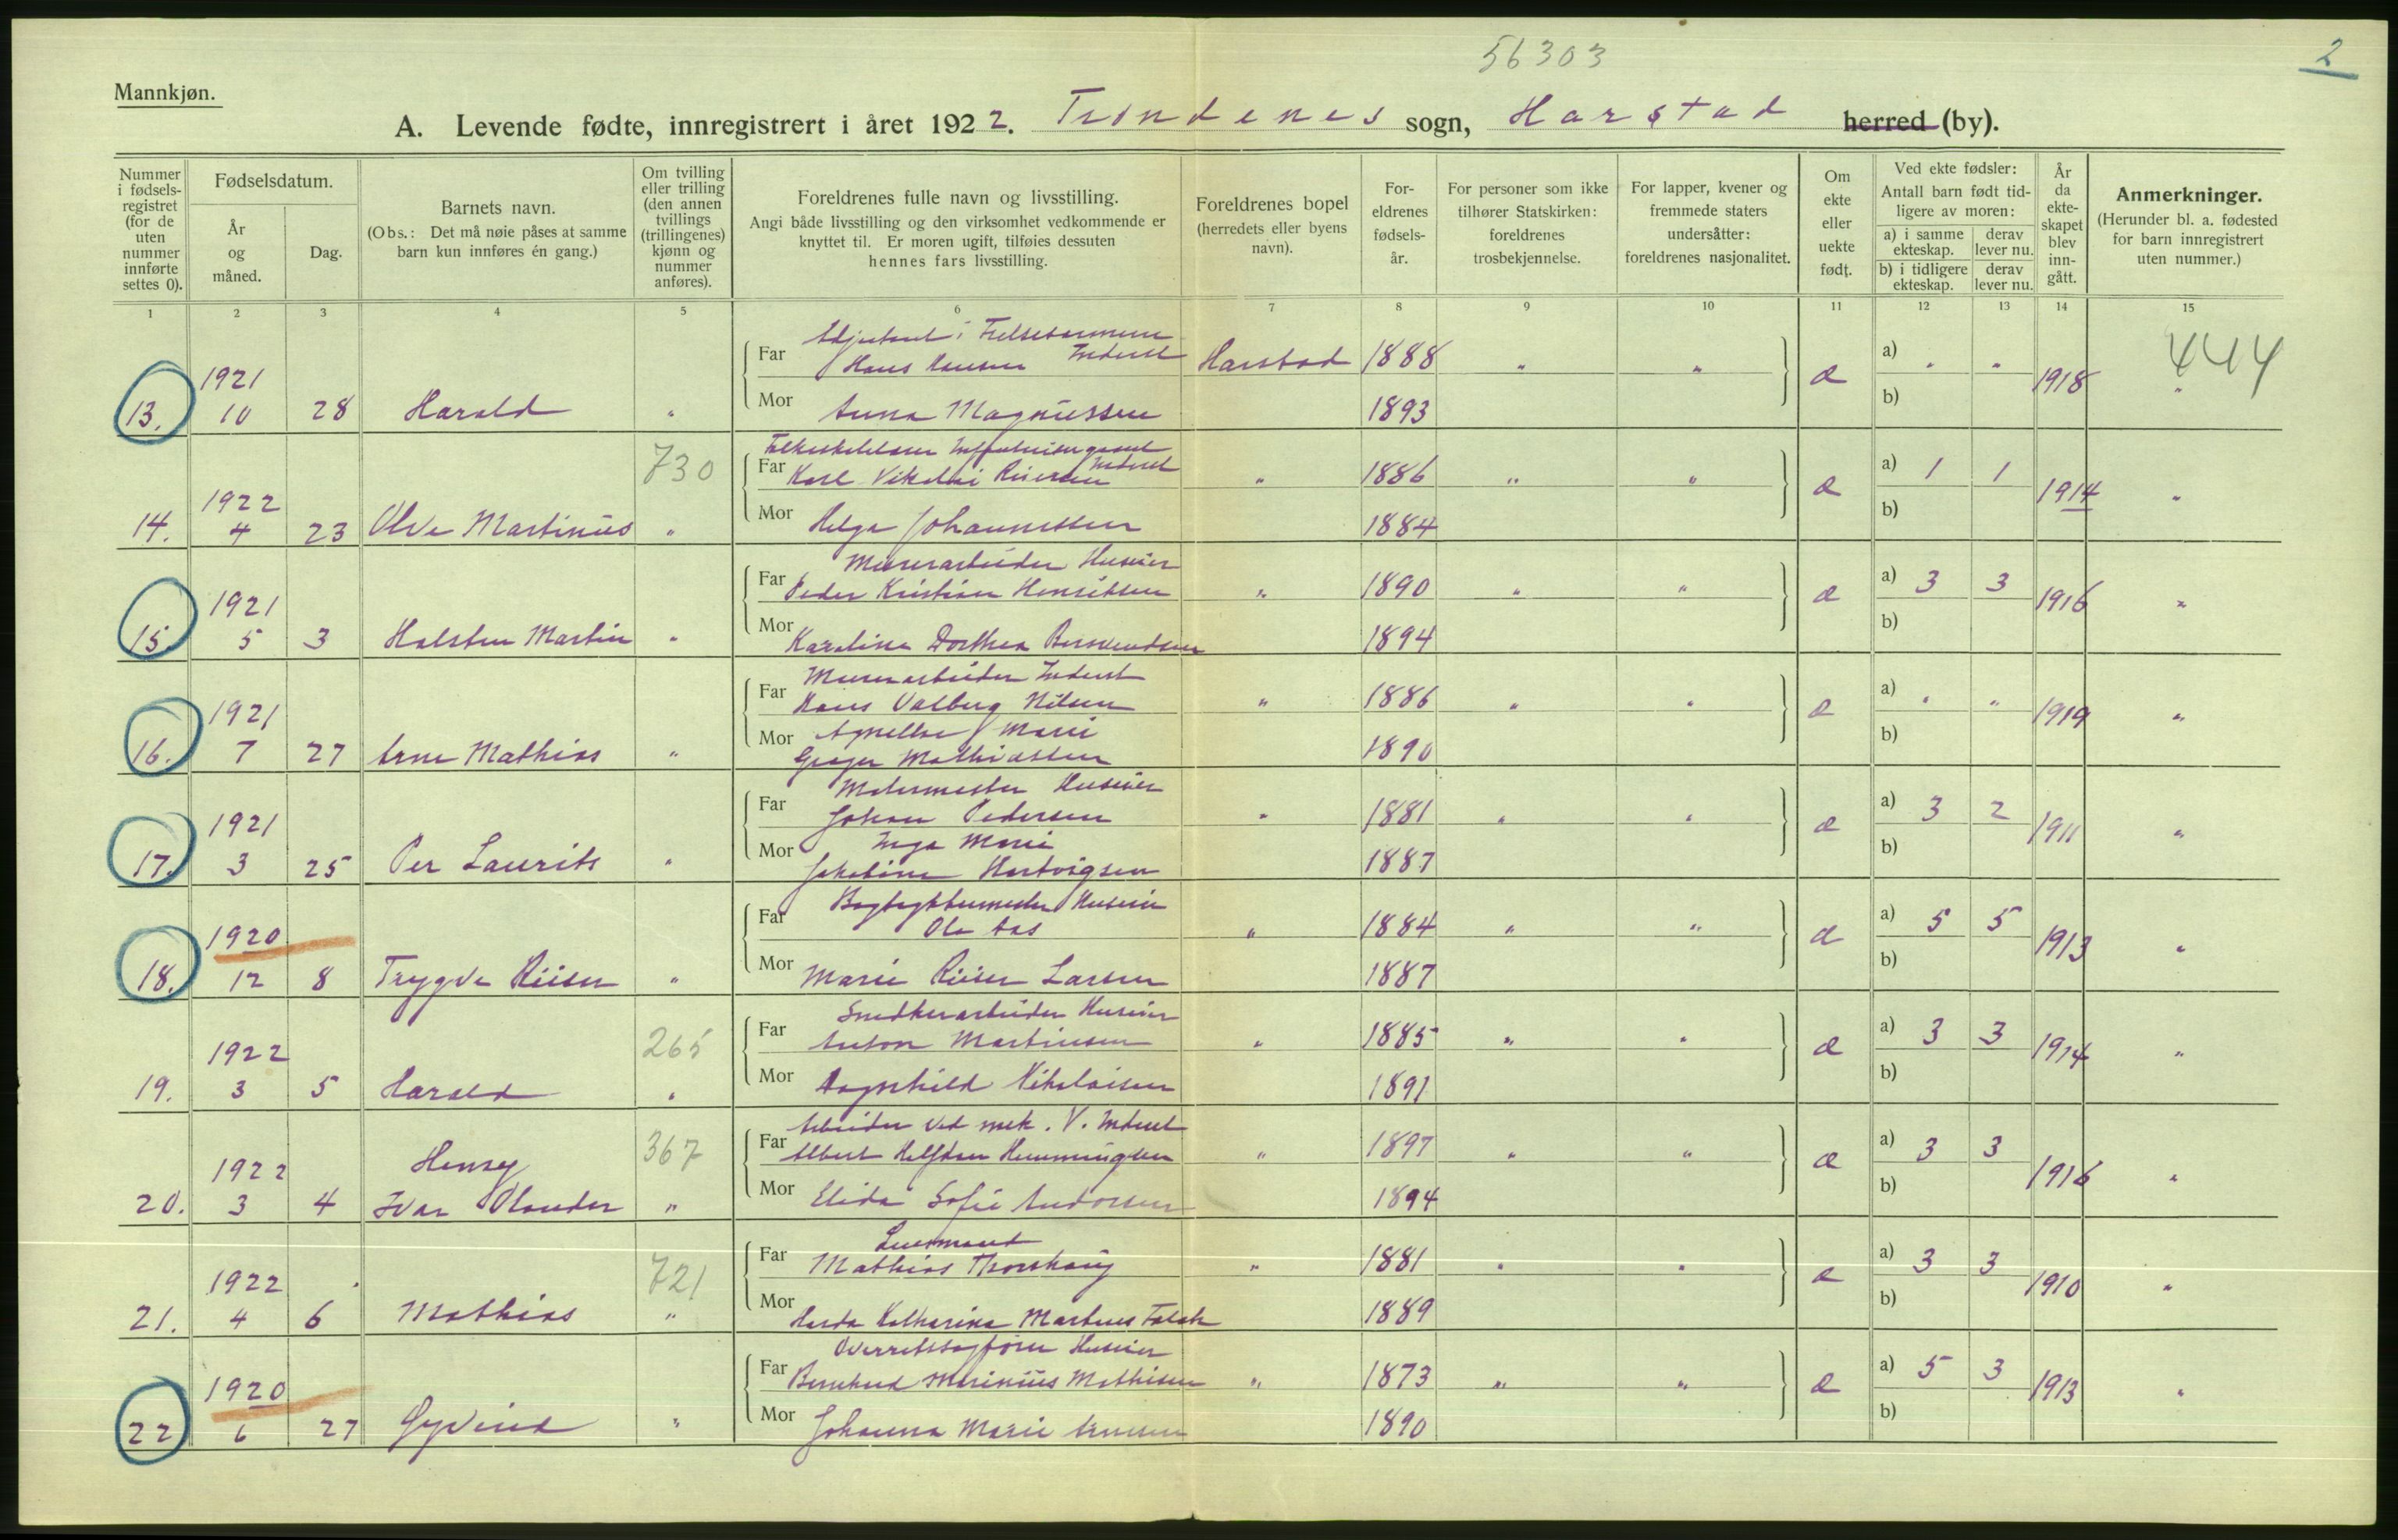 56303
2
Mannkjøn.
A. Levende fødte, innregistrert i året 1922. Trondenes sogn, Harstad herred (by).
Nummer i fødsels-registret (for de uten nummer innførte settes 0).
Fødselsdatum.
År og måned.
Dag.
Barnets navn.
(Obs.: Det må nøie påses at samme barn kun innføres én gang.)
Om tvilling eller trilling (den annen tvillings (trillingenes) kjønn og nummer anføres).
Foreldrenes fulle navn og livsstilling.
Angi både livsstilling og den virksomhet vedkommende er knyttet til. Er moren ugift, tilføies dessuten hennes fars livsstilling.
Foreldrenes bopel (herredets eller byens navn).
For-eldrenes fødsels-år.
For personer som ikke tilhører Statskirken: foreldrenes trosbekjennelse.
For lapper, kvener og fremmede staters undersåtter: foreldrenes nasjonalitet.
Om ekte eller uekte født.
Ved ekte fødsler:
Antall barn født tid-ligere av moren:
a) i samme ekteskap.
derav lever nu.
b) i tidligere ekteskap.
derav lever nu.
År da ekte-skapet blev inn-gått.
Anmerkninger.
(Herunder bl. a. fødested for barn innregistrert uten nummer.)
1 2 3 4 5 6 7 8 9 10 11 12 13 14 15
Adjutant i Frelsesarmeen
Far Hans Hansen Inderst Harstad 1888 " " a) " " 444
1921
13. 10 28 Harald " Mor Anna Magnussen 1893 æ b) 1918 "
730 Inderst
Far Karl Nikolai Reiersen " 1886 " " a) 1 1
1922
14. 4 23 Olve Martinus " Mor Helga Johannessen 1884 æ b) 1914 "
Murerarbeider Huseier
Far Peder Kristian Henriksen " 1890 " " a) 3 3
1921
15. 5 3 Halsten Martin " Mor Karoline Dorthea Berntzen 1894 æ b) 1916 "
Murerarbeider Inderst
Far Hans Valberg Nilsen " 1886 " " a) " "
1921
16. 7 27 Arne Mathias " Mor Marie Mathiassen 1890 æ b) 1919 "
Malermester Huseier
Far Johan Pedersen " 1881 " " a) 3 2
1921
17. 3 25 Per Laurits " Mor Inga Marie Jakobine Hartvigsen 1887 æ b) 1911 "
Huseier
Far Ole Aas " 1884 " " a) 5 5
1920
18. 12 8 Trygve Riiser " Mor Marie Riiser Larsen 1887 æ b) 1913 "
Snedkerarbeider Huseier
265 Far Anton Martinsen " 1885 " " a) 3 3
1922
19. 3 5 Harald " Mor Ragnhild Nikolaisen 1891 æ b) 1914 "
Arbeider ved mek. V. Inderst
367 Far Albert Halfdan Hemmingsen " 1897 " " a) 3 3
1922 Henry
20. 3 4 Ivar Olander " Mor Elida Sofie Andorsen 1894 æ b) 1916 "
Lensmand
721 Far Mathias Thorshaug " 1881 " " a) 3 3
1922
21. 4 6 Mathias " Mor Katharina Martens Falch 1889 æ b) 1910 "
Overretssagfører Huseier
Far Bernhard Marinius Mathisen " 1873 " " a) 5 3
1920
22 6 27 Øyvind " Mor Johanna Marie Arnesen 1890 æ b) 1913 "